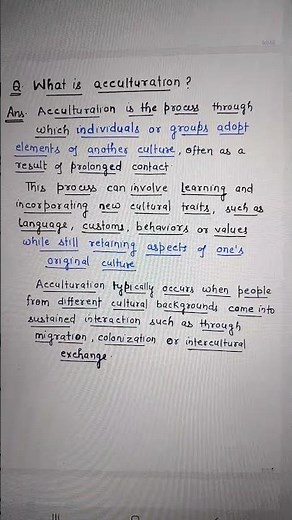 Q. What is acculturation?
Ans. Acculturation is the process through
which individuals or groups adopt
elements of another culture, often as a
result of prolonged contact.
This process can involve learning and
incorporating new cultural traits, such as
Language, customs, behaviors or values
while still retaining aspects of one's
original culture
Acculturation typically occurs when people
from different cultural backgrounds come into
sustained interaction such as through
migration, colonization or intercultural
exchange.